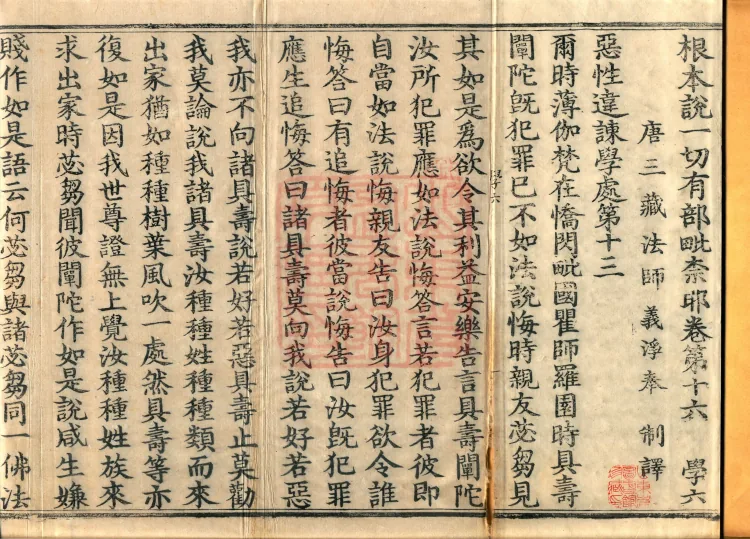 根本說一切有部毗柰耶卷第十六 學六
唐三藏法師義淨奉 制譯
惡性違諫學處第十三
爾時薄伽梵在憍閃毗國瞿師羅園時具壽
闡陀旣犯罪已不如法說悔時親友苾芻見
學六
其如是爲欲令其利益安樂告言具壽闡陀
汝所犯罪應如法說悔答言若犯罪者彼即
自當如法說悔親友告曰汝身犯罪欲令誰
悔答曰有追悔者彼當說悔告曰汝旣犯罪
應生追悔答曰諸具壽莫向我說若好若惡
我亦不向諸具壽說若好若惡具壽止莫勸
我莫論說我諸具壽汝種種姓種種類而來
出家猶如種種樹葉風吹一處然具壽等亦
復如是因我世尊證無上覺汝種種姓族來
求出家時苾芻聞彼闡陀作如是說咸生嫌
賤作如是語云何苾芻與諸苾芻同一佛法